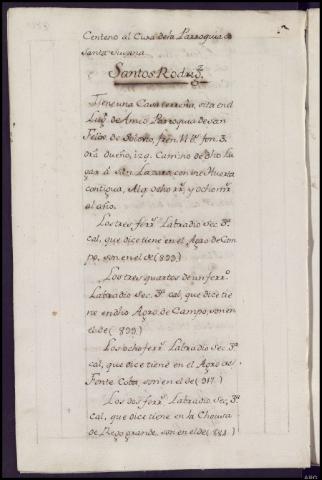 Centeno al Cura dela Parroquia de
Santa Susana
Santos Rodrigz.
Tiene una Casa terreña, sita en el
Lug. de Amio Parroquia de San
Felix de Solobio,
dro dueño, izq. Camino de dho Lu
gar à San Lazaro, con
contigua, Alq. ocho rrs. y ocho mrs
al año.
Los tres ferrs. Labradio Sec. 3ª
cal, que dice tiene en el Agro de Cam
po, son en el de (899)
Los tres quartos de un ferrº
Labradio Sec. 3ª cal, que dice tie
ne en dho Agro, de Campo, son en
el de (899.)
Los ocho ferrs. Labradio Sec. 3ª
cal, que dice tiene en el Agro de
Fonte Coba, son en el de (917.)
Los dos ferrs. Labradio Sec. 3ª
cal, que dice tiene en la Chousa
de Rego grande, son en el de (884.)